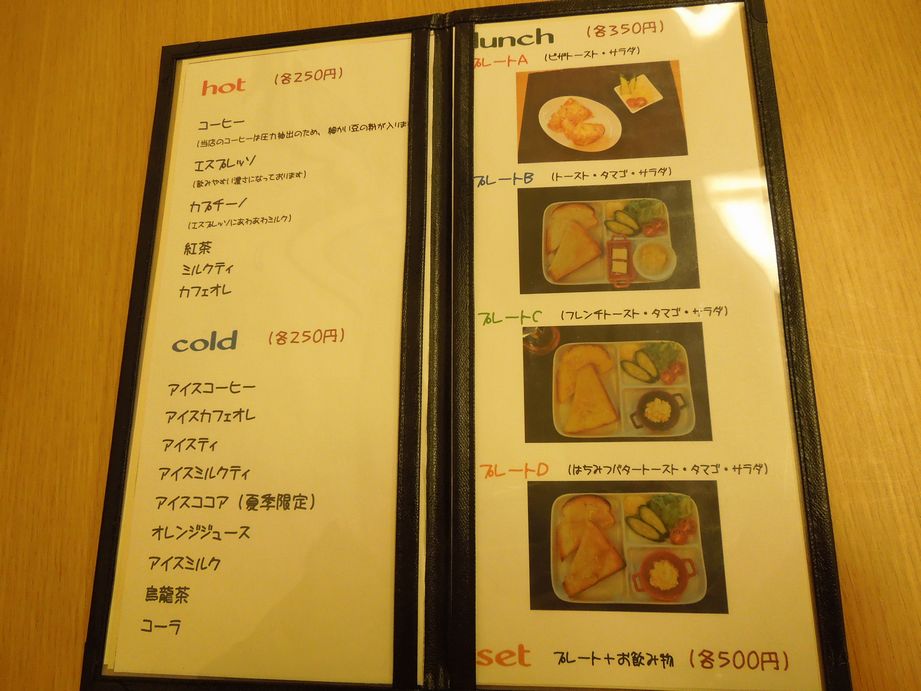 hot (各250円)
コーヒー
(当店のコーヒーは圧力抽出のため、細かい豆の粉が入りま
エスプレッソ
(飲みやすい濃さになっております)
カプチーノ
(エスプレッソにあわあわミルク)
紅茶
ミルクティ
カフェオレ
cold (各250円)
アイスコーヒー
アイスカフェオレ
アイスティ
アイスミルクティ
アイスココア (夏季限定)
オレンジジュース
アイスミルク
烏龍茶
コーラ
lunch (各350円)
プレートA (ピザトースト・サラダ)
プレートB (トースト・タマゴ・サラダ)
プレートC (フレンチトースト・タマゴ・サラダ)
プレートD (はちみつバタートースト・タマゴ・サラダ)
set プレート+お飲み物 (各500円)